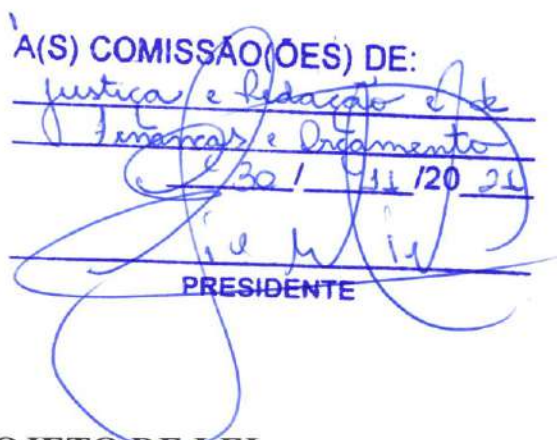 À(S) COMISSÃO(ÕES) DE:
Justiça e Redação e de
Finanças e Orçamento
30 / 11 /20 21
PRESIDENTE
OJETO DE LEI